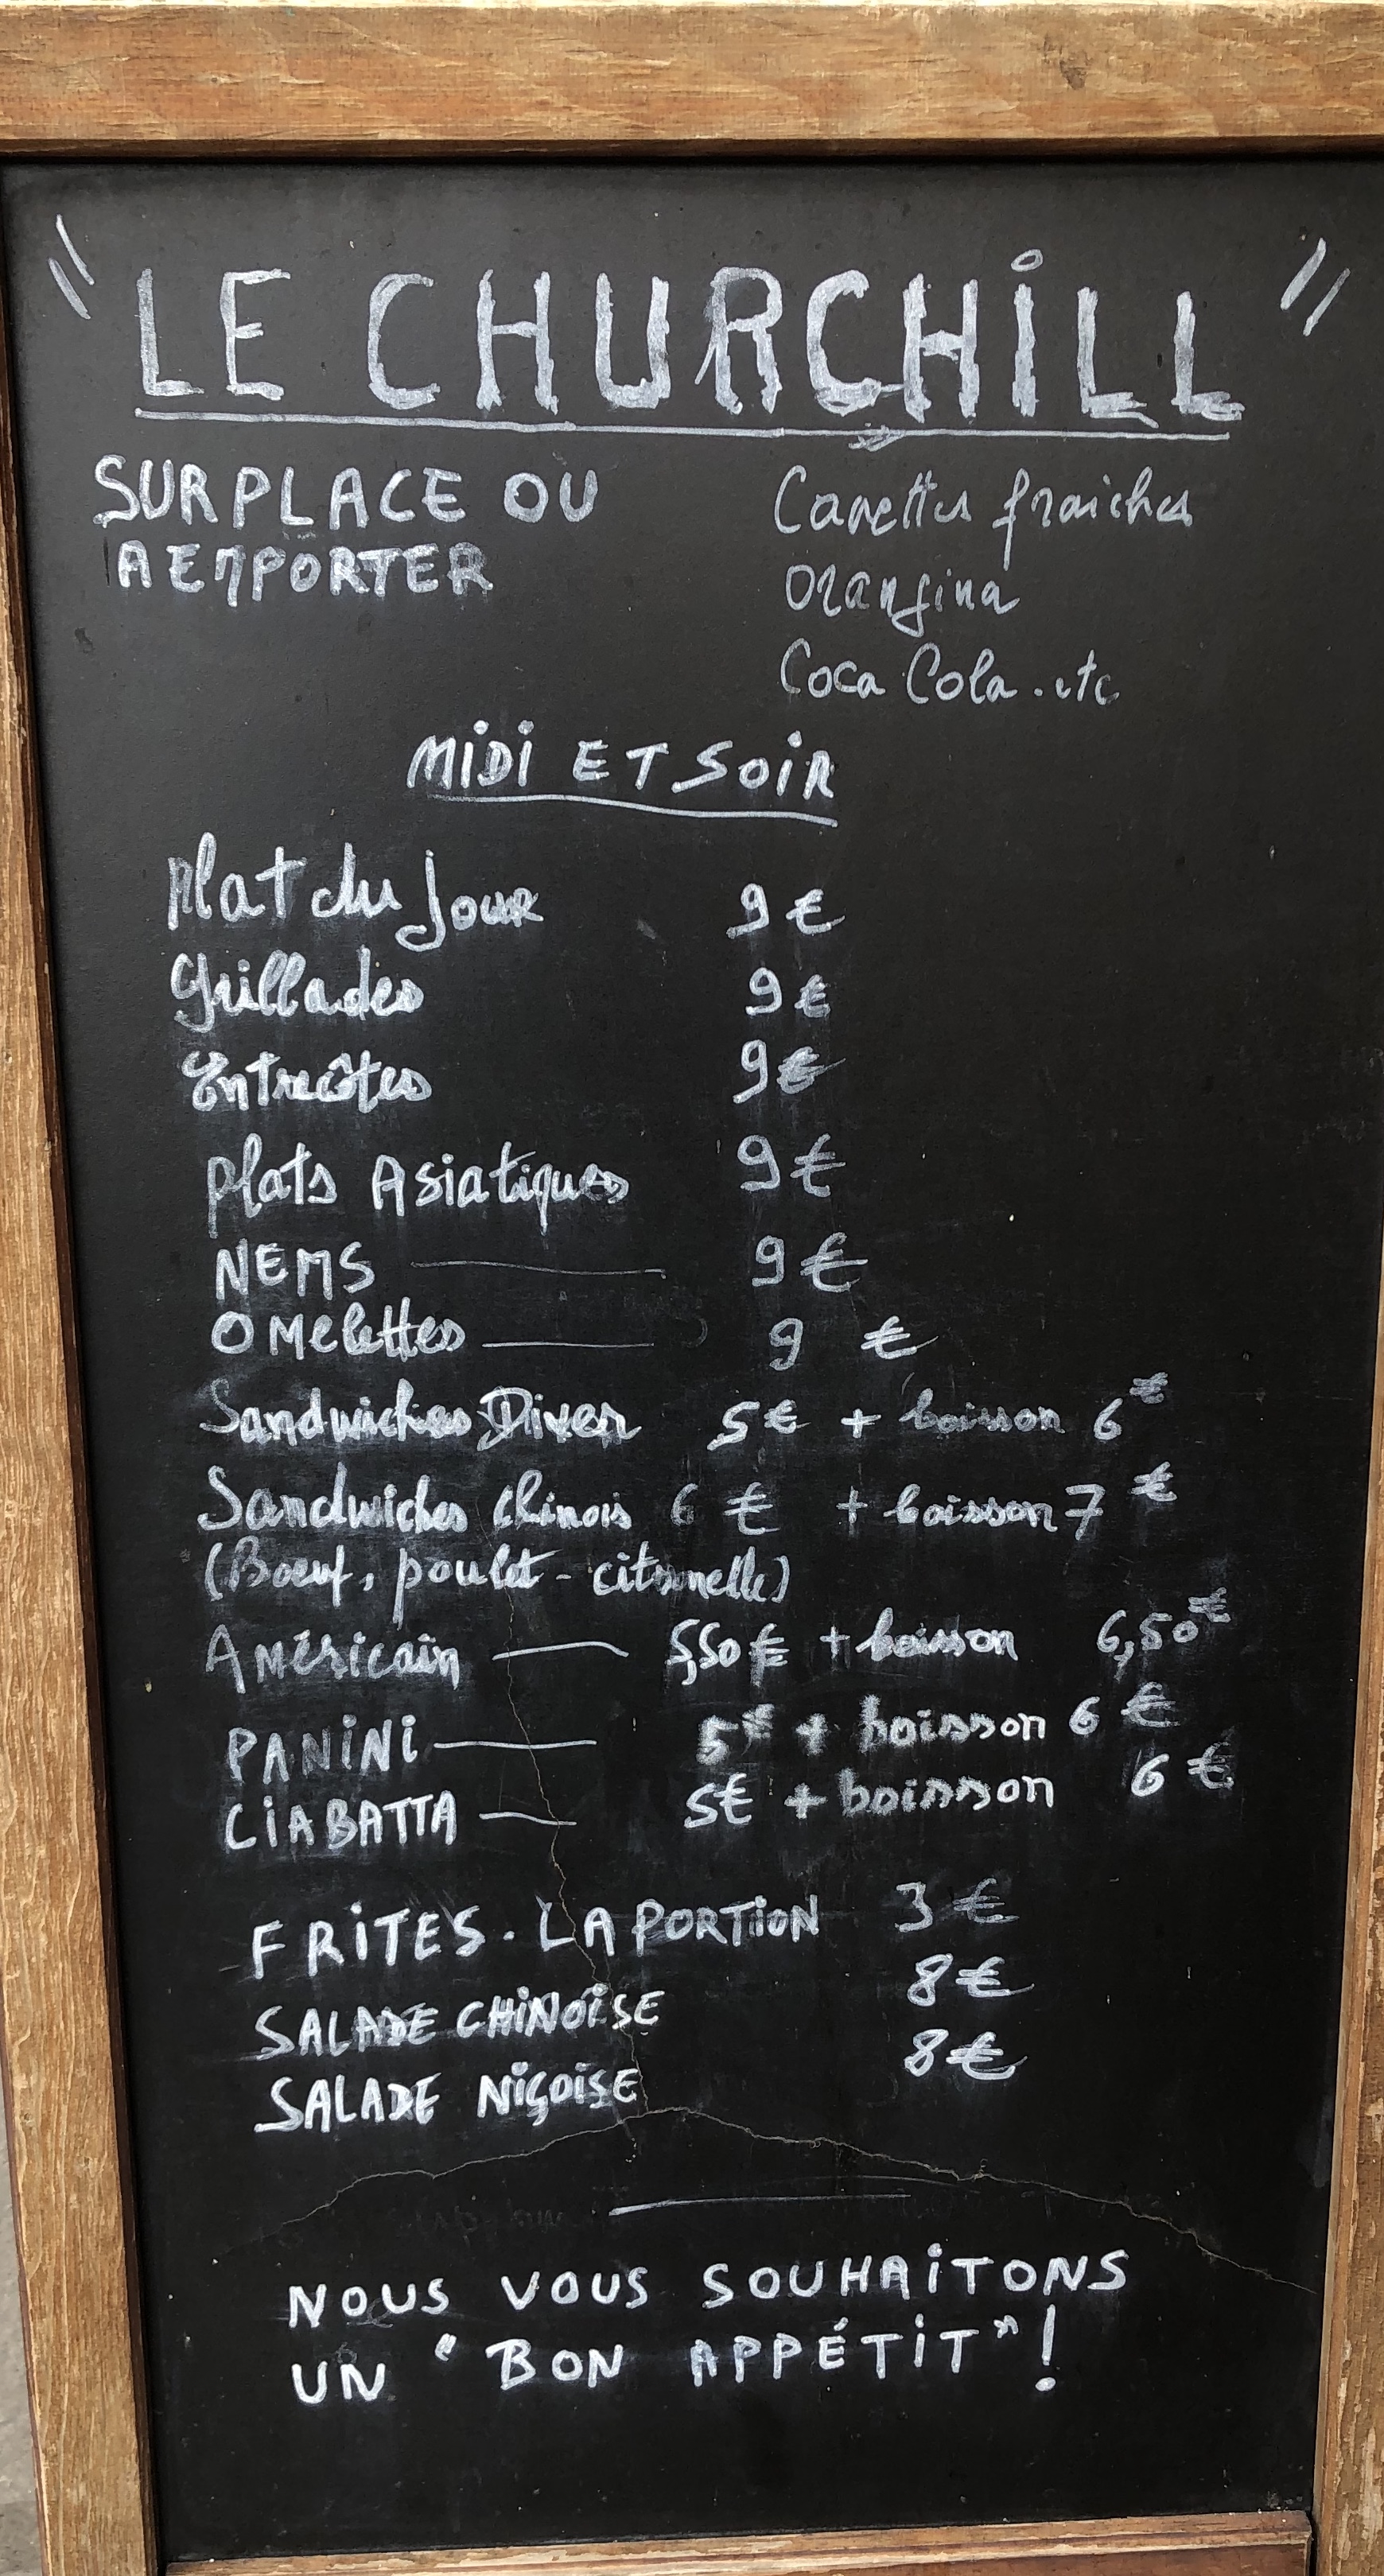 "LE CHURCHiLL"
SUR PLACE OU
A EMPORTER
Canettes fraiches
Orangina
Coca Cola. etc
MiDi ET SOiR
Plat du jour 9 €
Grillades 9 €
Entrecôtes 9 €
Plats Asiatiques 9 €
NEMS — 9 €
OMelettes — 9 €
Sandwiches Diver 5 € + boisson 6 €
Sandwiches Chinois 6 € + boisson 7 €
(Boeuf, poulet - citronelle)
Américain — 5,50 € + boisson 6,50 €
PANiNi — 5 € + boisson 6 €
CiABATTA — 5 € + boisson 6 €
FRiTES. LA PORTiON 3 €
SALADE CHiNOiSE 8 €
SALADE NiÇOiSE 8 €
NOUS VOUS SOUHAiTONS
UN "BON APPÉTiT"!